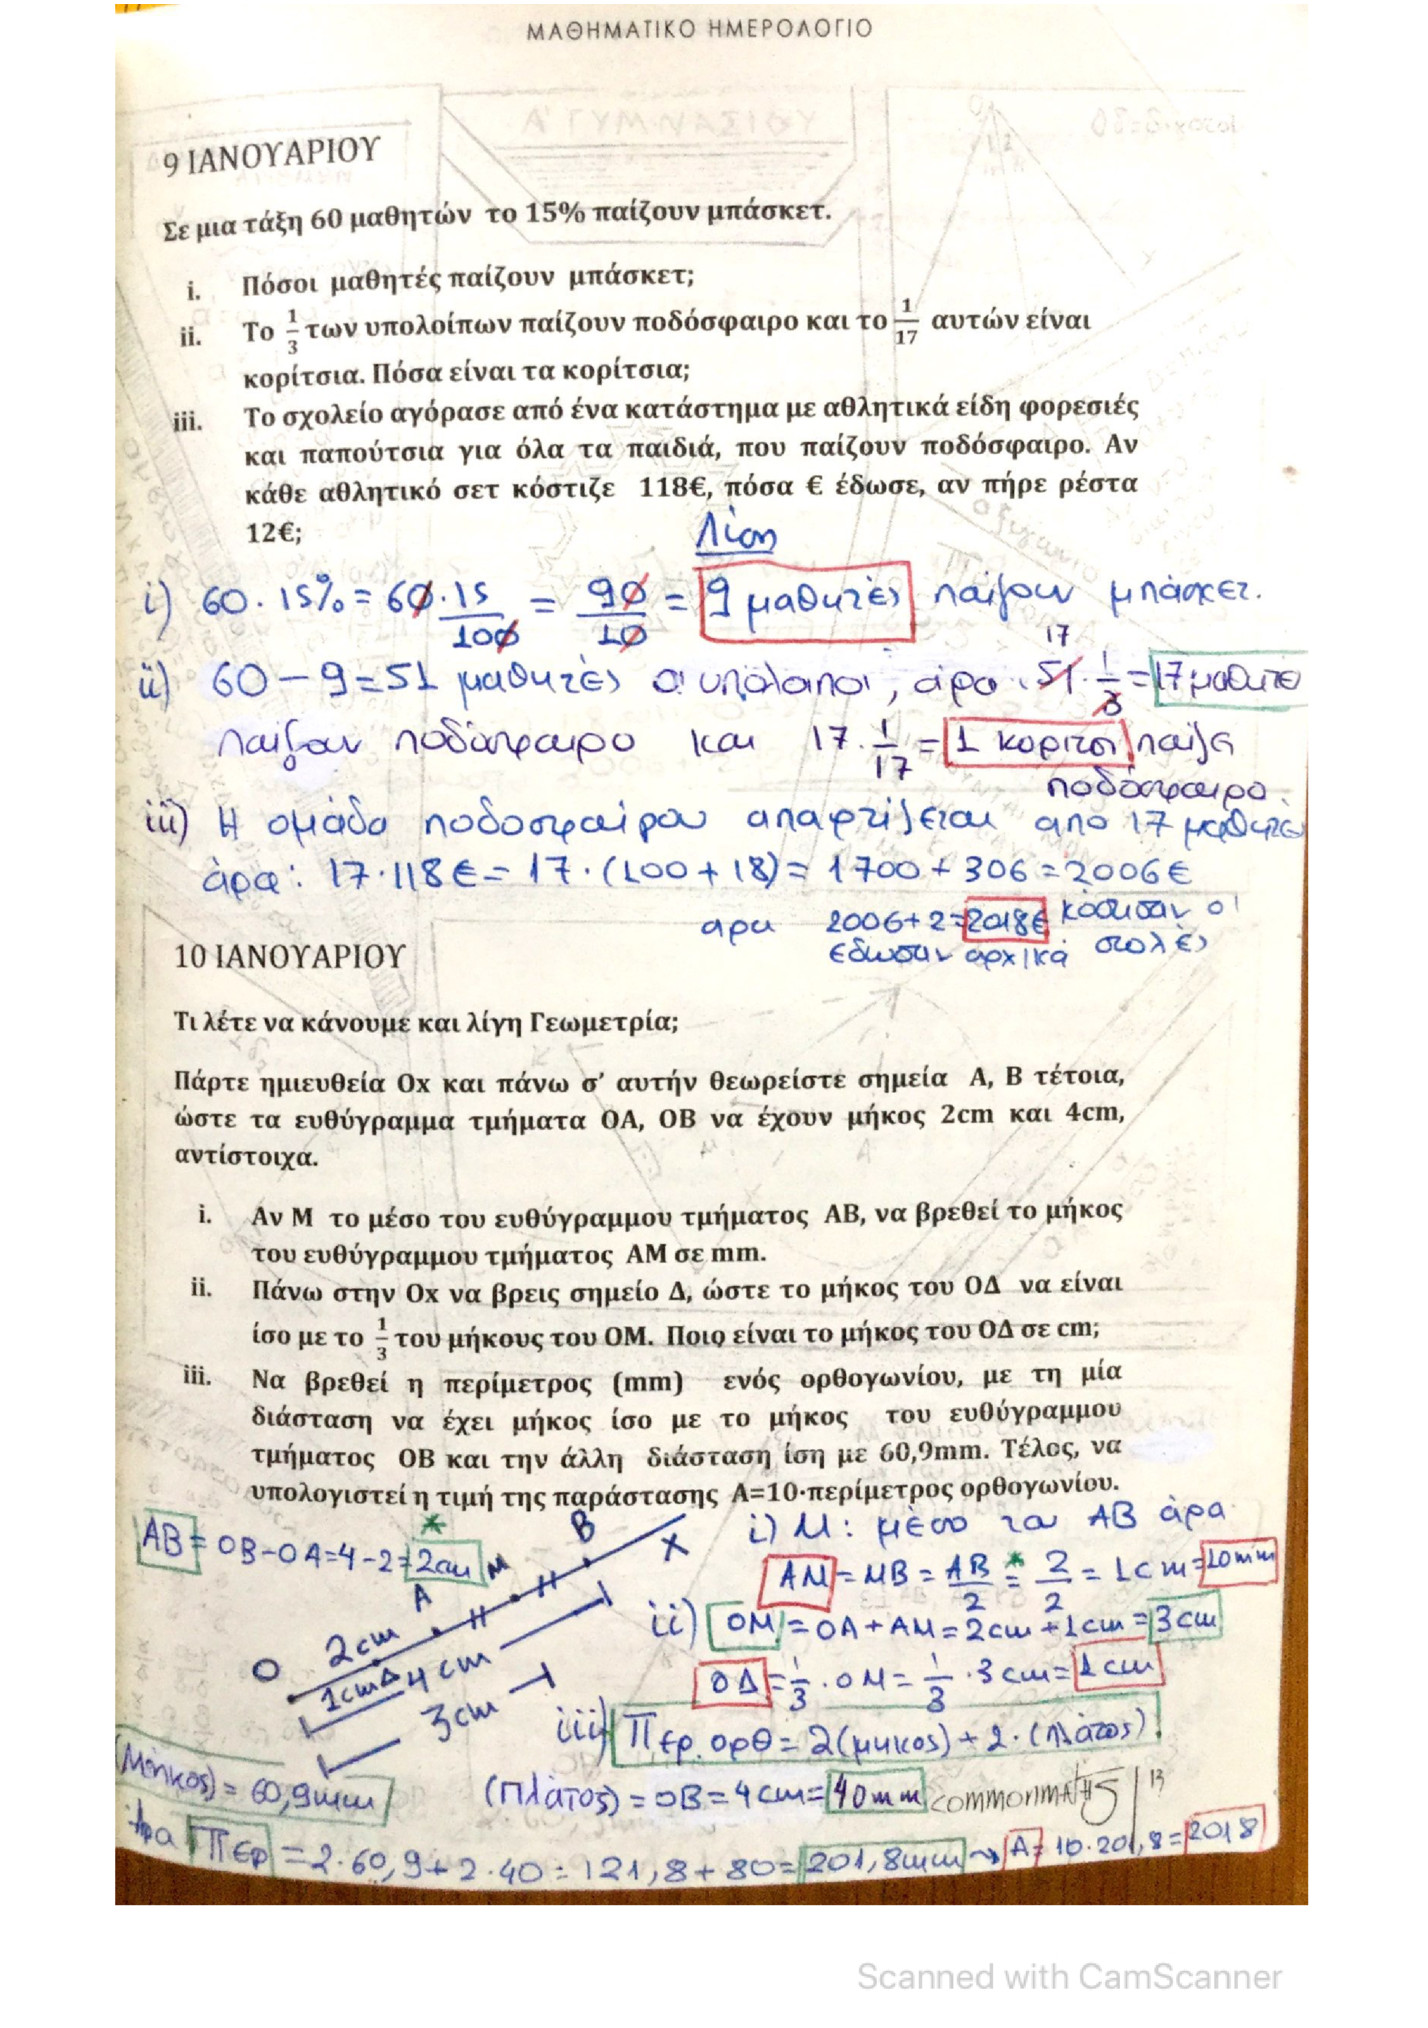 ΜΑΘΗΜΑΤΙΚΟ ΗΜΕΡΟΛΟΓΙΟ
9 ΙΑΝΟΥΑΡΙΟΥ
Σε μια τάξη 60 μαθητών το 15% παίζουν μπάσκετ.
i. Πόσοι μαθητές παίζουν μπάσκετ;
ii. Το 1/3 των υπολοίπων παίζουν ποδόσφαιρο και το 1/17 αυτών είναι
κορίτσια. Πόσα είναι τα κορίτσια;
iii. Το σχολείο αγόρασε από ένα κατάστημα με αθλητικά είδη φορεσιές
και παπούτσια για όλα τα παιδιά, που παίζουν ποδόσφαιρο. Αν
κάθε αθλητικό σετ κόστιζε 118€, πόσα € έδωσε, αν πήρε ρέστα
12€;
Λύση
i) 60 · 15% = 60·15/100 = 90/10 = 9 μαθητές παίζουν μπάσκετ.
17
ii) 60 – 9 = 51 μαθητές οι υπόλοιποι, άρα 51 · 1/3 = 17 μαθητέ
παίζουν ποδόσφαιρο και 17 · 1/17 = 1 κορίτσι παίζει
ποδόσφαιρο.
iii) Η ομάδα ποδοσφαίρου απαρτίζεται από 17 μαθητές
άρα: 17·118€ = 17·(100+18) = 1700 + 306 = 2006€
άρα 2006+2=2018€ κόστισαν οι
έδωσαν αρχικά στολές
10 ΙΑΝΟΥΑΡΙΟΥ
Τι λέτε να κάνουμε και λίγη Γεωμετρία;
Πάρτε ημιευθεία Οx και πάνω σ' αυτήν θεωρείστε σημεία Α, Β τέτοια,
ώστε τα ευθύγραμμα τμήματα ΟΑ, ΟΒ να έχουν μήκος 2cm και 4cm,
αντίστοιχα.
i. Αν Μ το μέσο του ευθύγραμμου τμήματος ΑΒ, να βρεθεί το μήκος
του ευθύγραμμου τμήματος ΑΜ σε mm.
ii. Πάνω στην Οx να βρεις σημείο Δ, ώστε το μήκος του ΟΔ να είναι
ίσο με το 1/3 του μήκους του ΟΜ. Ποιο είναι το μήκος του ΟΔ σε cm;
iii. Να βρεθεί η περίμετρος (mm) ενός ορθογωνίου, με τη μία
διάσταση να έχει μήκος ίσο με το μήκος του ευθύγραμμου
τμήματος ΟΒ και την άλλη διάσταση ίση με 60,9mm. Τέλος, να
υπολογιστεί η τιμή της παράστασης Α=10·περίμετρος ορθογωνίου.
ΑΒ = ΟΒ-ΟΑ=4-2=2cm *
Ο Δ Α Μ Β x
2cm
1cm
4cm
3cm
i) Μ: μέσο του ΑΒ άρα
ΑΜ = ΜΒ = ΑΒ/2 =* 2/2 = 1cm = 10mm
ii) ΟΜ = ΟΑ + ΑΜ = 2cm + 1cm = 3cm
ΟΔ = 1/3 · ΟΜ = 1/3 · 3cm = 1cm
iii) Περ. ορθ = 2(μήκος) + 2·(πλάτος)
(Μήκος) = 60,9mm
(Πλάτος) = ΟΒ = 4cm = 40mm
COMMONMATHS 13
Άρα Περ = 2·60,9+2·40 = 121,8+80 = 201,8mm → Α = 10·201,8 = 2018
Scanned with CamScanner